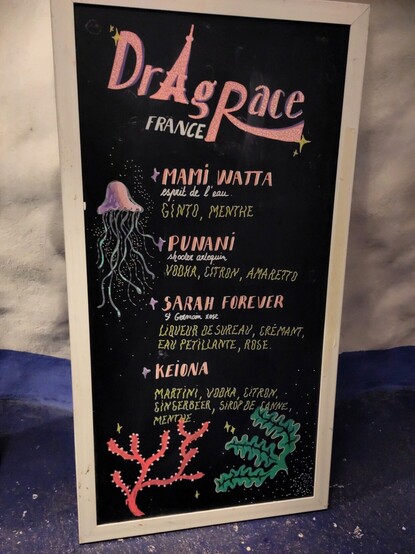 DrAg Race
FRANCE
MAMI WATTA
esprit de l'eau
GINTO, MENTHE
PUNANI
shooter arlequin
VODKA, CITRON, AMARETTO
SARAH FOREVER
St Germain rose
LIQUEUR DE SUREAU, CRÉMANT,
EAU PETILLANTE, ROSE.
KEIONA
MARTINI, VODKA, CITRON,
GINGERBEER, SIROP DE CANNE,
MENTHE